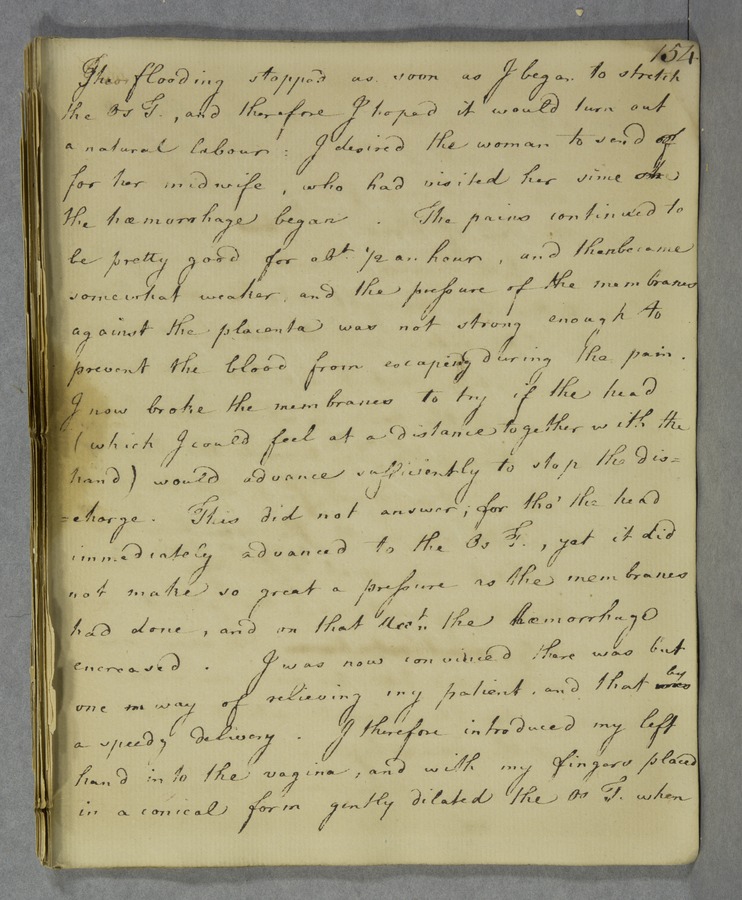 154
The flooding stopped as soon as I began to stretch
the Os T., and therefore I hoped it would turn out
a natural labour: I desired the woman to send off
for her midwife, who had visited her since
the hæmorrhage began. The pains continued to
be pretty good for abt. 1/2 an hour, and then became
somewhat weaker, and the pressure of the membranes
against the placenta was not strong enough to
prevent the blood from escaping during the pain.
I now broke the membranes to try if the head
(which I could feel at a distance together with the
hand) would advance sufficiently to stop the dis=
=charge. This did not answer; for tho' the head
immediately advanced to the Os T., yet it did
not make so great a pressure as the membranes
had done, and on that acct. the hæmorrhage
encreased. I was now convinced there was but
one way of relieving my patient, and that by
a speedy delivery. I therefore introduced my left
hand into the vagina, and with my fingers placed
in a conical form gently dilated the Os T. when